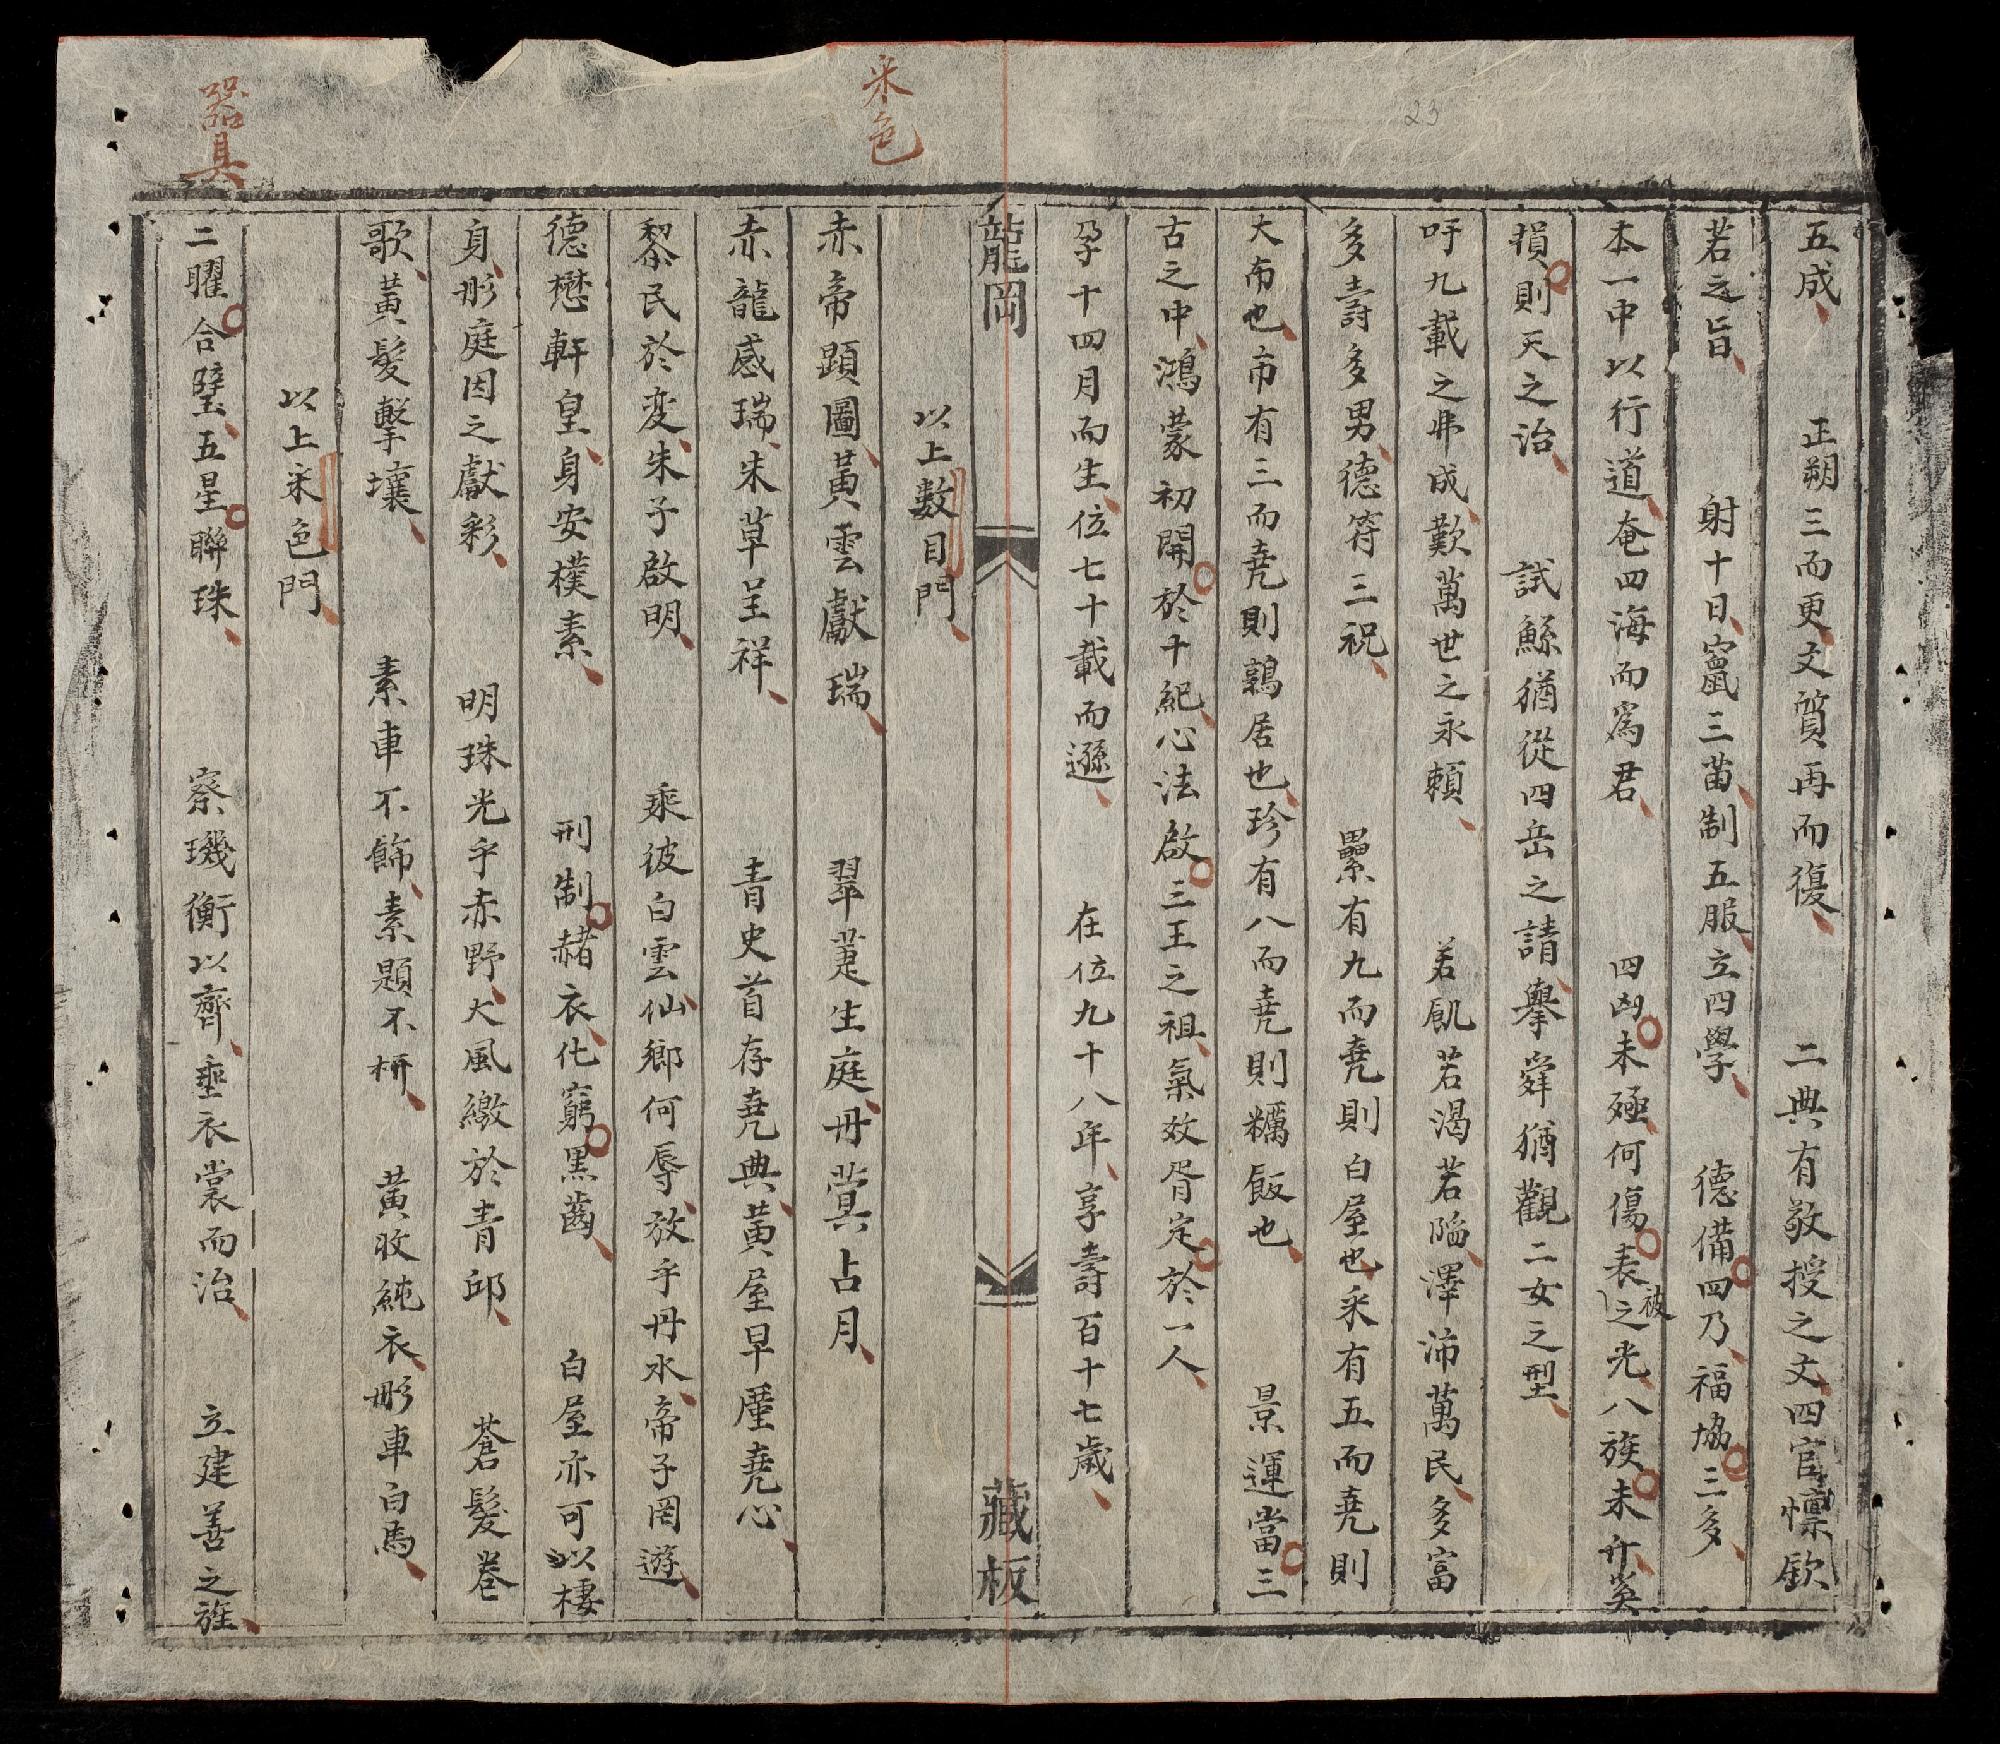 五成 正朔三而更文質再而復 二典有敬授之文四官懍欽
若之旨 射十日竄三苗制五服立四學 德備四乃福協三多
本一中以行道奄四海而為君 四凶未殛何傷表被之光八族未升奚
損則天之治 試鯀猶從四岳之請舉舜猶觀二女之型
吁九載之弗成歎萬世之永賴 若飢若渴若隘澤沛萬民多富
多壽多男德符三祝 壘有九而堯則白屋也采有五而堯則
大布也市有三而堯則鶉居也珍有八而堯則糲飯也 景運當三
古之中鴻蒙初開於十紀心法啟三王之祖氣效胥定於一人
孕十四月而生位七十載而遜 在位九十八年享壽百十七歲
龍岡 藏板
以上數目門
采色
赤帝顕圖黃雲獻瑞 翠萐生庭丹蓂占月
赤龍感瑞朱草呈祥 青史首存堯典黃屋早廑堯心
黎民於変朱子啟明 乘彼白雲仙鄉何辱放乎丹水帝子罔遊
德懋軒皇身安樸素 刑制赭衣化窮黑齒 白屋亦可以棲
身彤庭因之獻彩 明珠光乎赤野大風繳於青邱 蒼髮巷
歌黃髮擊壤 素車不飾素題不枅 黃收純衣彤車白馬
以上采色門
器具
二曜合璧五星聯珠 察璣衡以齊垂衣裳而治 立建善之旌
23